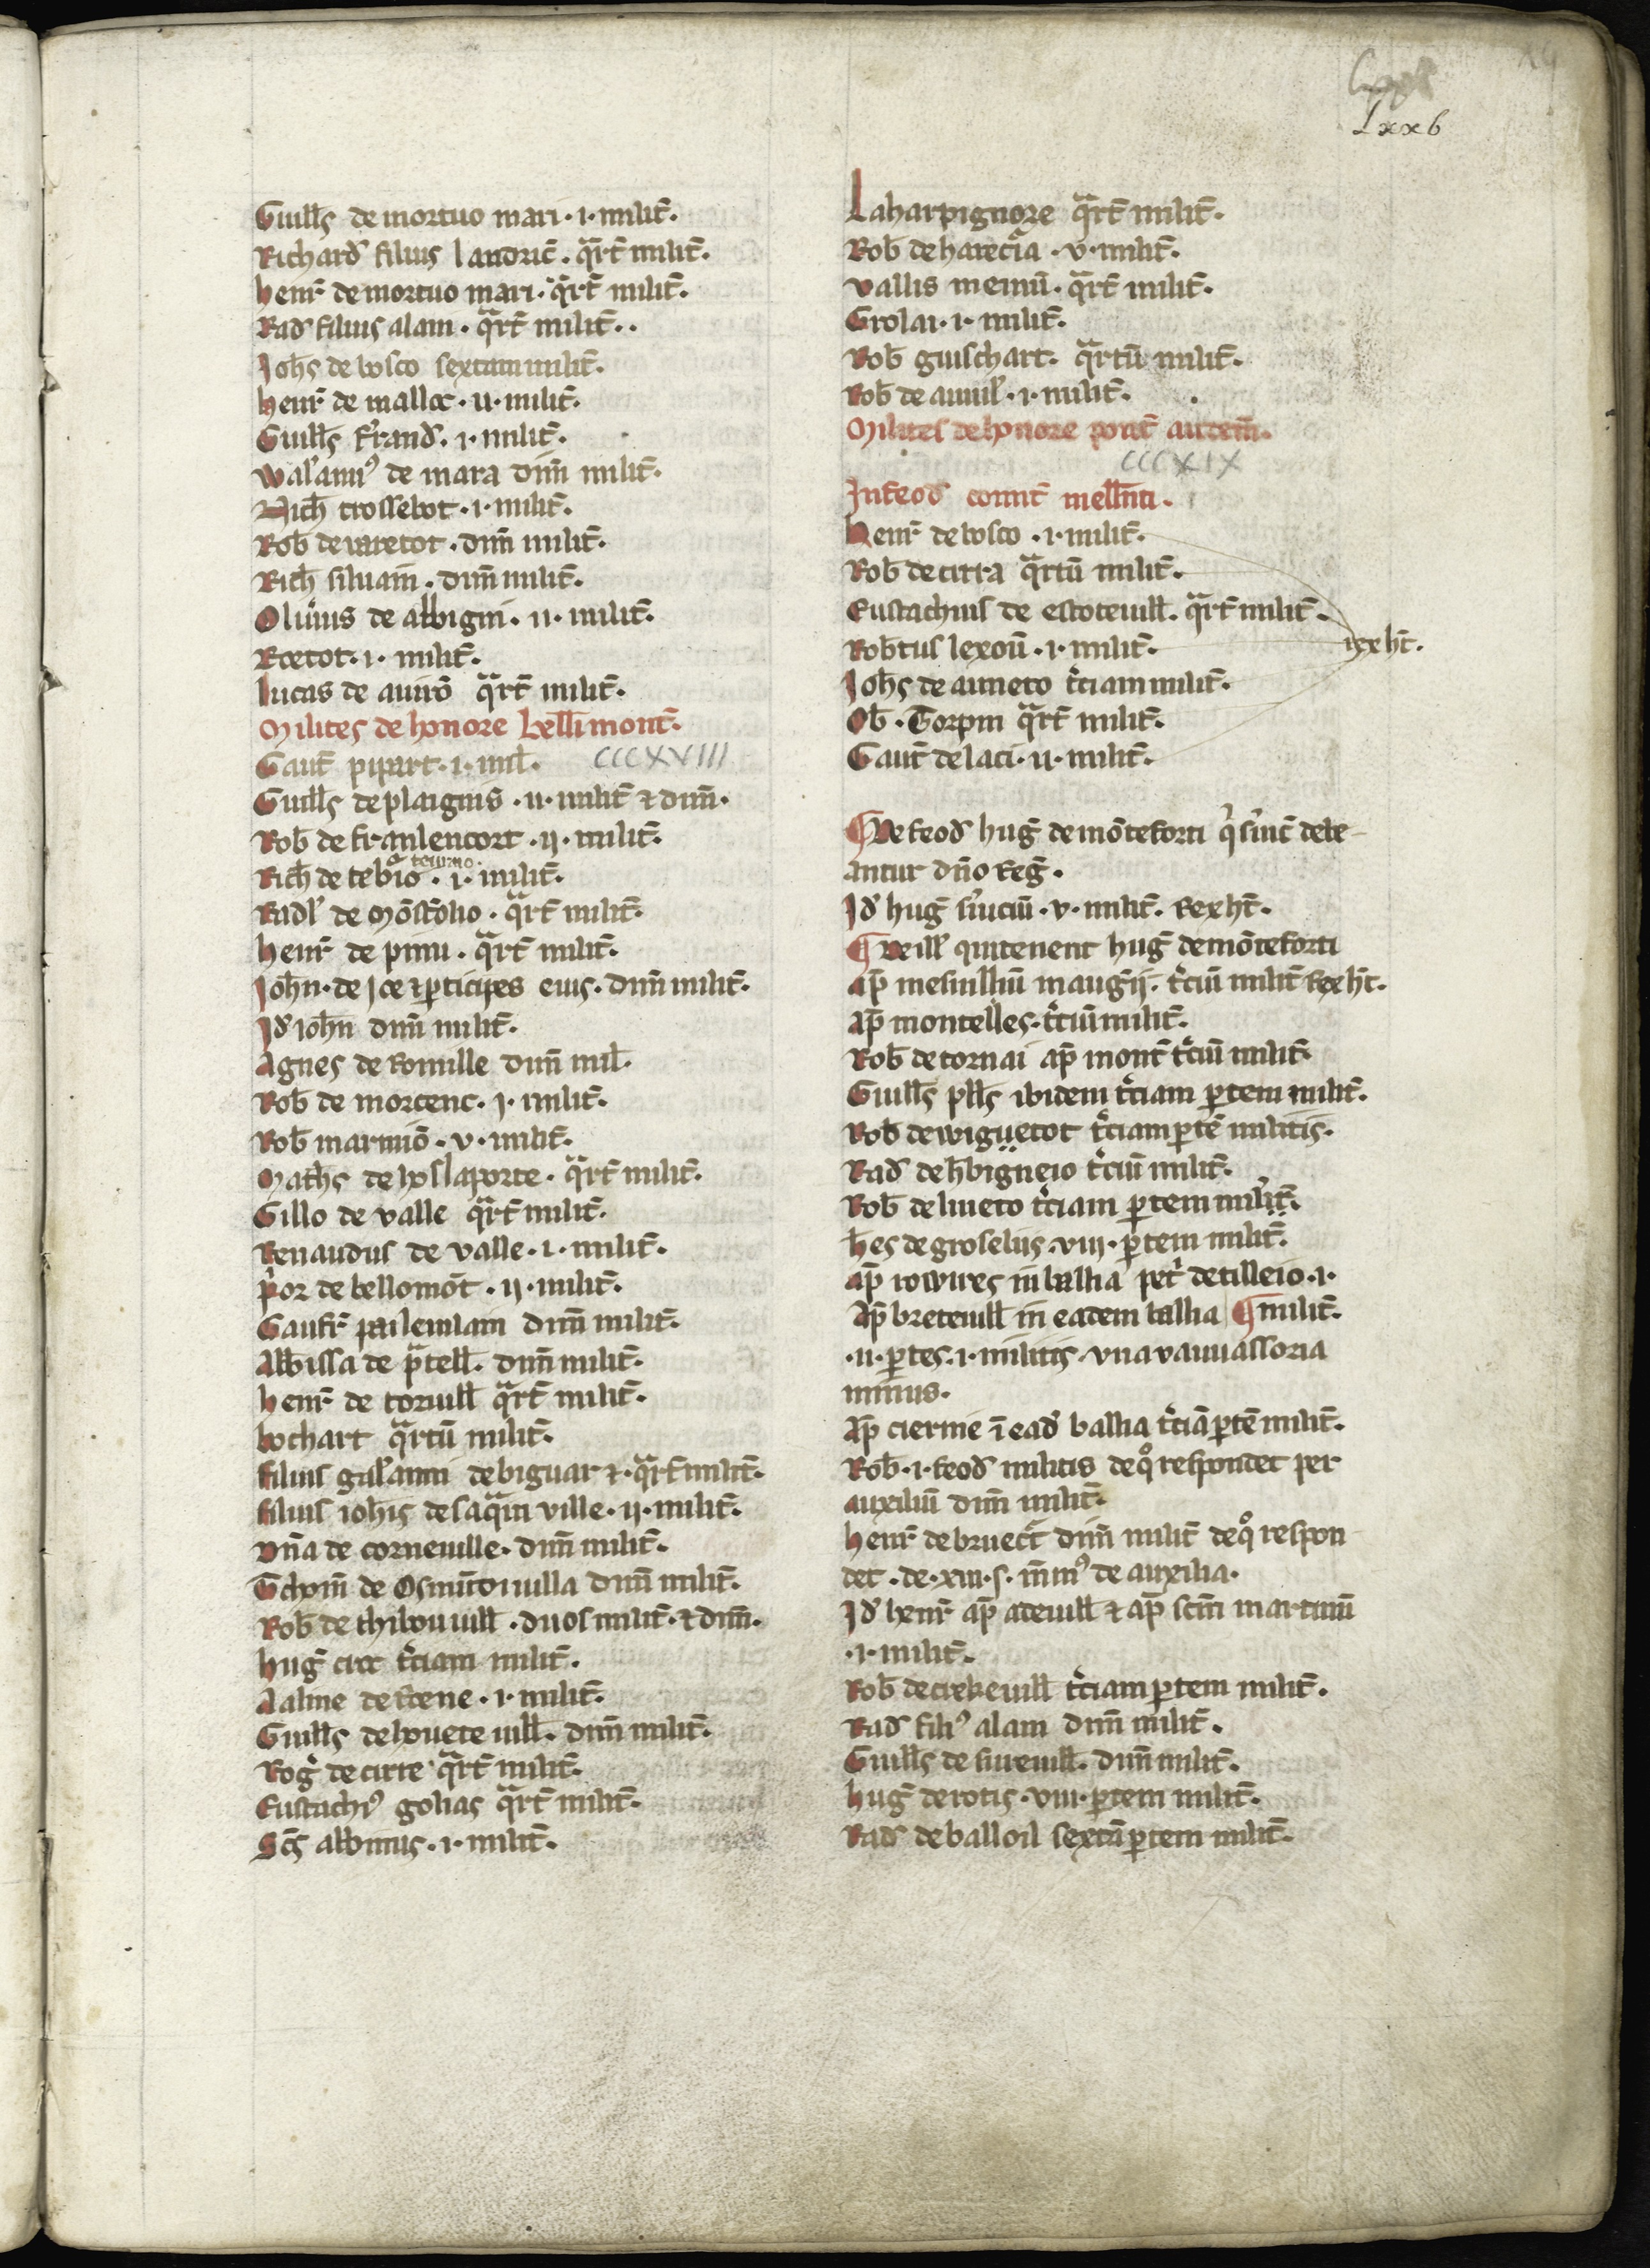 Lxxb
Guill̄s de mortuo mari · i · milit̄ ·
Richard̄ filius landric̄ · qͣrt̄ milit̄ ·
henr̄ de mortuo mari · qͣrt̄ milit̄ ·
Rad̄ filius alani · qͣrt̄ milit̄ · ·
Joh̄s de bosco sextam milit̄ ·
henr̄ de malloc · ii · milit̄ ·
Guill̄s fr̄and̄ · i · milit̄ ·
Wal̄annꝰ de mara dim̄ milit̄ ·
Nich̄ trossebot · i · milit̄ ·
Rob̄ de iuretot · dim̄ milit̄ ·
Rich̄ siluain · dim̄ milit̄ ·
Oliu̾ius de albigni · ii · milit̄ ·
Rcetot · i · milit̄ ·
lucas de auirō qͣrt̄ milit̄ ·
Milites de honore bell̄i mont̄ ·
Gaut̄ pipart · i · mil̄ · CCCXVIII
Guill̄s de plaignis · ii · milit̄ ⁊ dim̄ ·
Rob̄ de franlencort · ij · milit̄ ·
teiurno
Rich̄ de tebio · i · milit̄ ·
Radl̄ de mōst̄olio · qͣrt̄ milit̄ ·
henr̄ de pinu · qͣrt̄ milit̄ ·
Joh̄n · de Jce ⁊ ꝑticipes eius · dim̄ milit̄ ·
Jd̄ ioh̄n dim̄ milit̄ ·
Agnes de Romille dim̄ mil̄ ·
Rob̄ de mortenc · j · milit̄ ·
Rob̄ marmiō · v · milit̄ ·
Math̄s de hoslaporte · qͣrt̄ milit̄ ·
Gillo de valle qͣrt̄ milit̄ ·
Renaudus de valle · i · milit̄ ·
pͥor de bellomōt · ij · milit̄ ·
Gaufr̄ pailemlain dim̄ milit̄ ·
Albissa de pͣtell̄ · dim̄ milit̄ ·
henr̄ de toruill̄ qͣrt̄ milit̄ ·
bochart qͣrtū milit̄ ·
filius gal̄anni de biguar ⁊ · qͣrt̄ milit̄ ·
filius ioh̄is de saqͣin ville · ij · milit̄ ·
Dn̄a de corneuille · dim̄ milit̄ ·
Rob̄ de thibouuill̄ · duos milit̄ · ⁊ dim̄ ·
huḡ circ t̾ciam milit̄ ·
Aaline de fcene · i · milit̄ ·
Guill̄s de houeteuill̄ · dim̄ milit̄ ·
Rog̾ de cirre qͣrt̄ milit̄ ·
Eustachꝰ golias qͣrt̄ milit̄ ·
Sc̄s albinus · i · milit̄ ·
Laharpignore qͣrt̄ milit̄ ·
Rob̄ de harecͣia · v · milit̄ ·
vallis meinū · qͣrt̄ milit̄ ·
Grolai · i · milit̄ ·
Rob̄ guischart · qͣrtū milit̄ ·
Rob̄ de auuil̾ · i · milit̄ ·
Milites de honore pont̄ audem̄ ·
CCCXIX
In feod̄ comit̄ mell̄nti ·
henr̄ de bosco · i · milit̄ ·
Rob̄ de cirra qͣrtū milit̄ ·
Eustachius de estoteuill̄ · qͣrt̄ milit̄ ·
Rob̄tus lexoū · i · milit̄ · rex ht̄ ·
Joh̄s de auneto t̾ciam milit̄ ·
Ob̄ · Torpin qͣrt̄ milit̄ ·
Gaut̄ de laci · ii · milit̄ ·
¶ De feod̄ huḡ de mōteforti q̾ s̾uic̄ debe-
antur dn̄o Reḡ ·
Jd̄ huḡ s̾uiciū · v · milit̄ · Rex ht̄ ·
¶ De ill̾ qui tenent huḡ de mōteforti
Ap̄ mesnilliū maug̾ij · t̾ciū milit̄ Rex ht̄ ·
Ap̄ montelles · t̾ciū milit̄ ·
Rob̄ de tornai ap̄ mont̄ t̾ciū milit̄
Guill̄s pll̄s ibidem t̾ciam ꝑtem milit̄ ·
Rob̄ de wiguetot t̾ciam ꝑtē militis ·
Rad̄ de h̄bigneio t̾ciū milit̄ ·
Rob̄ de liueto t̾ciam ꝑtem milit̄ ·
h̄es de groseliis · viij · ꝑtem milit̄ ·
ap̄ iovures in ballia pet̾ de tilleio · i ·
Ap̄ breteuill̄ in eadem ballia ¶ milit̄ ·
· ii · ꝑtes · i · militis · vna vauuassoria
minus ·
Ap̄ cierrne ī ead̄ ballia t̾ciā ꝑtē milit̄ ·
Rob̄ · i · feod̄ militis de qͦ respondet per
auxiliū dim̄ milit̄ ·
henr̄ de bruect̾ dim̄ milit̄ de qͦ respon-
det · de · xiii · s · min̄ꝰ de auxilia ·
Jd̄ henr̄ ap̄ ateuill̄ ⁊ ap̄ sc̄m martinū
· i · milit̄ ·
Rob̄ de crekeuill̄ t̾ciam ꝑtem milit̄ ·
Rad̄ filiꝰ alani dim̄ milit̄ ·
Guill̄s de siueuill̄ · dim̄ milit̄ ·
huḡ de rotis · viii · ꝑtem milit̄ ·
Rad̄ de balloil sextā ꝑtem milit̄ ·